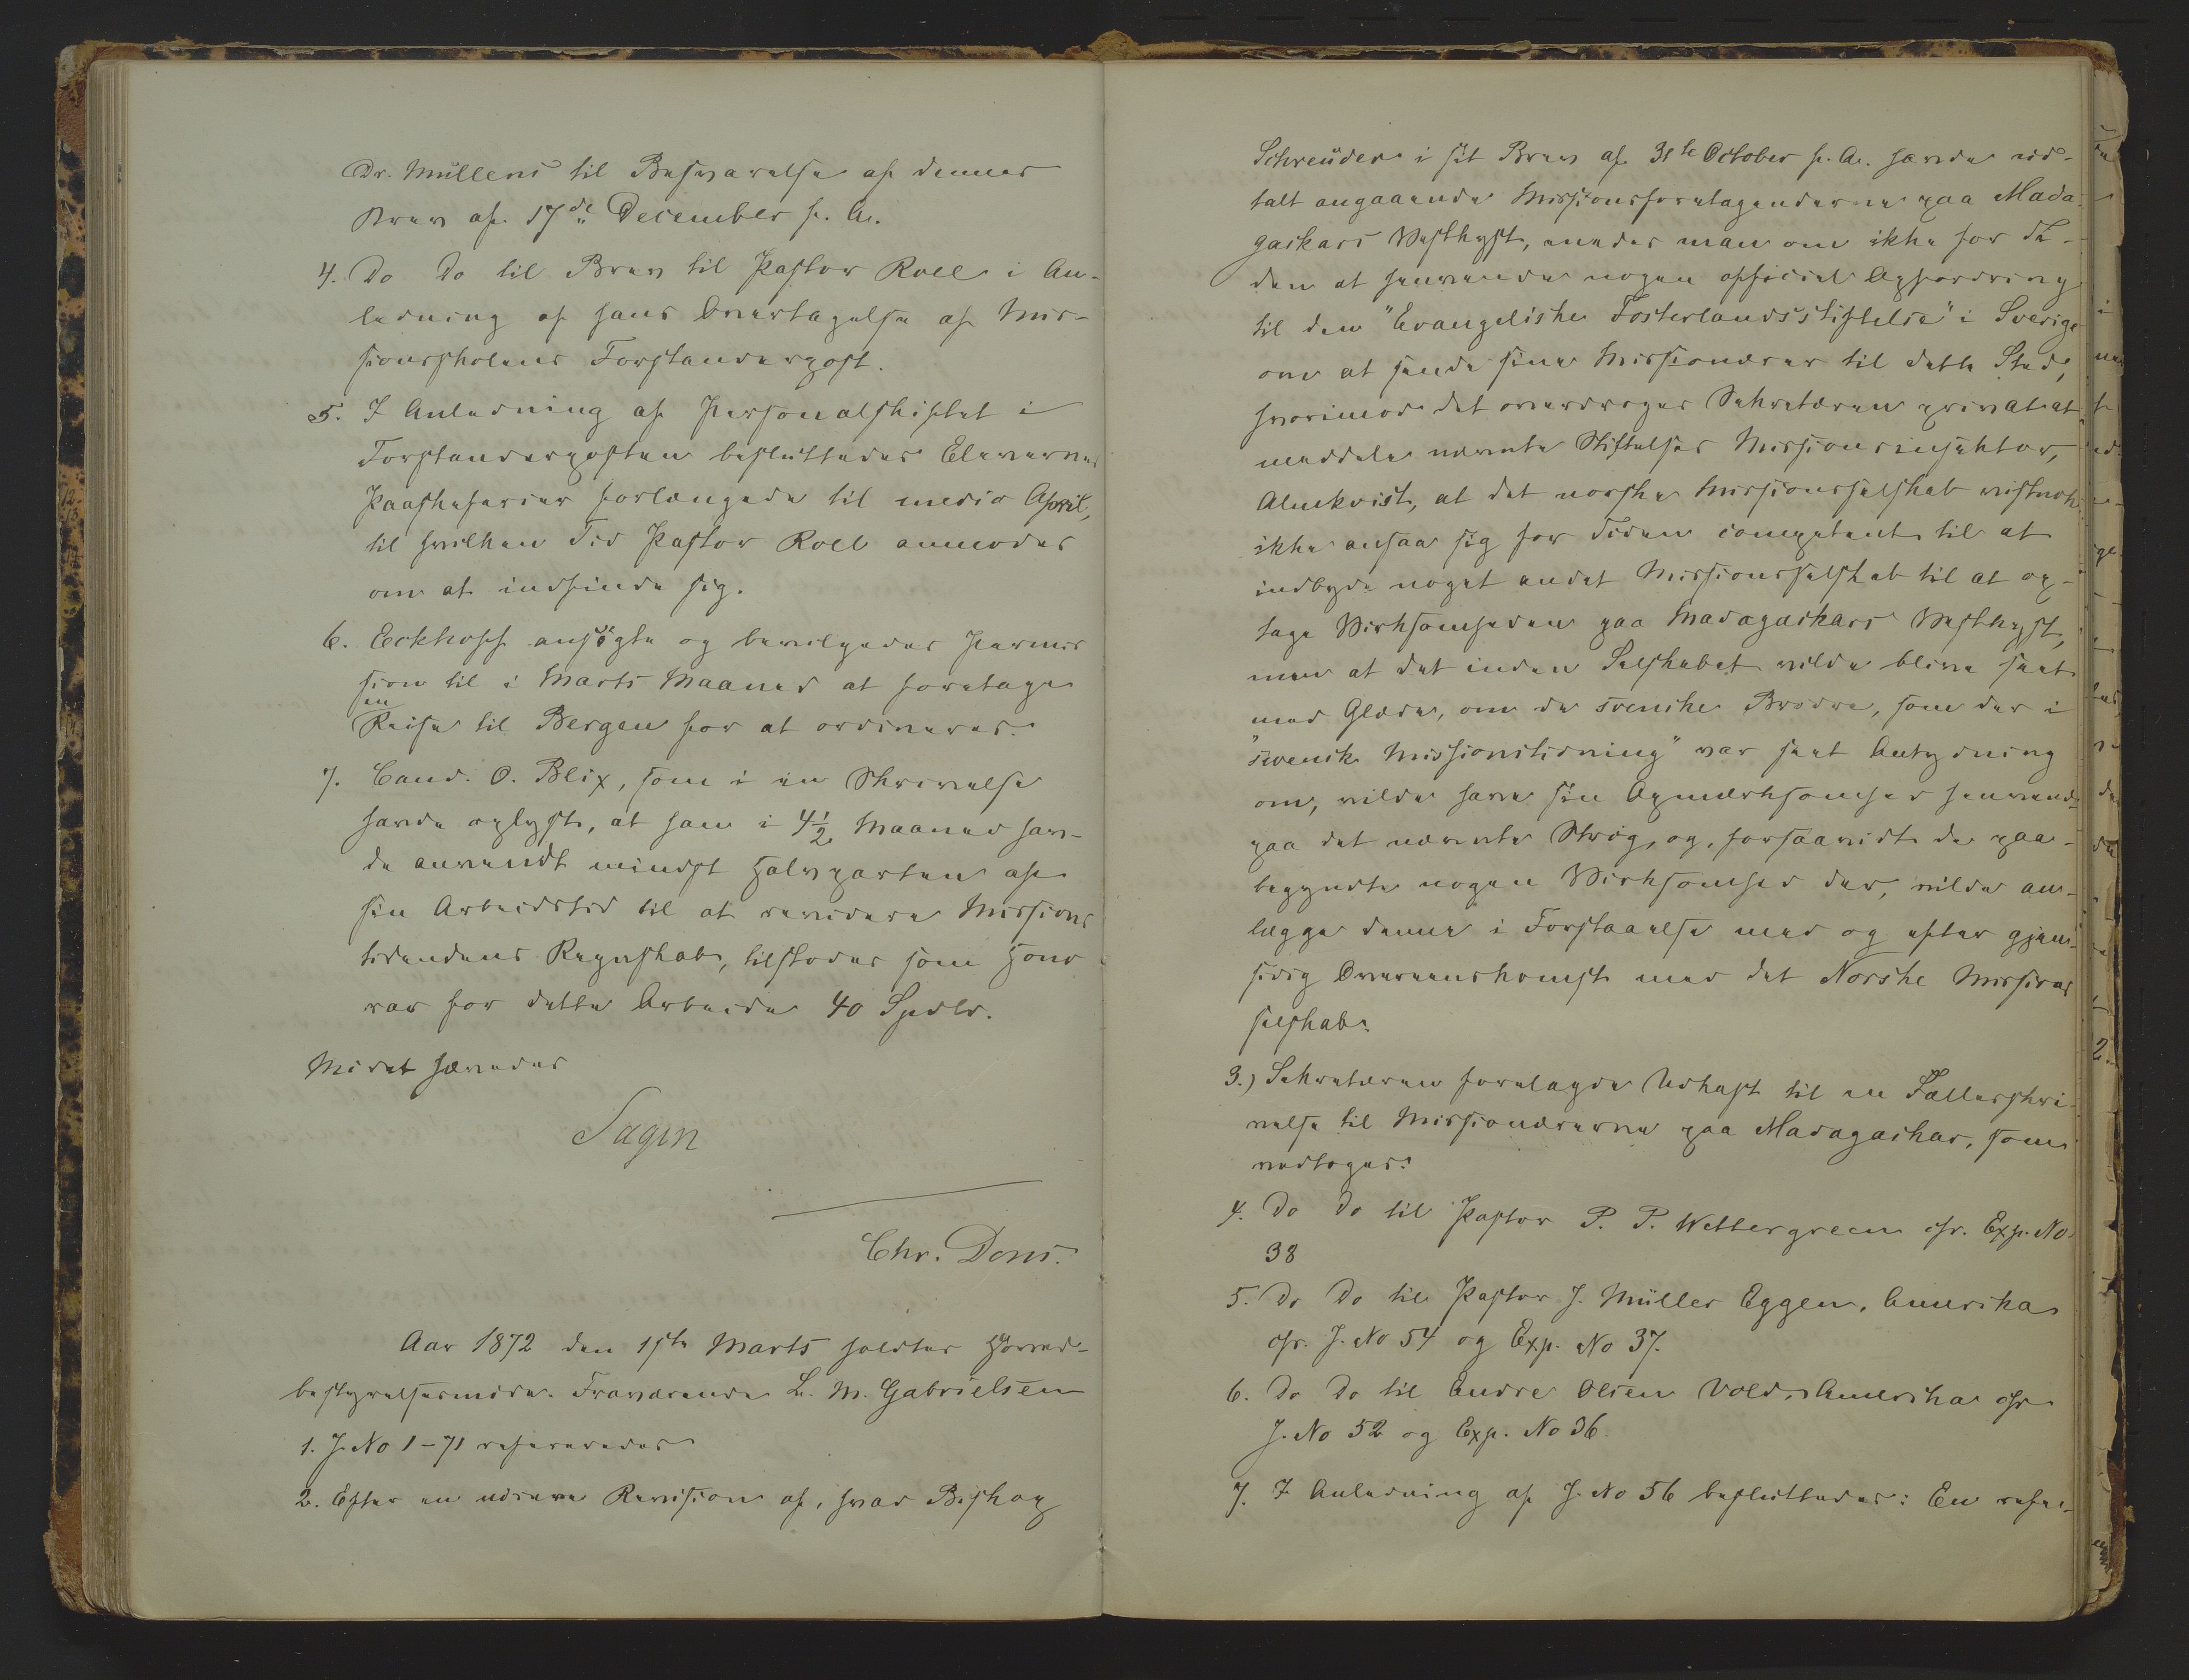 Dr. Müllens til Besvarelse af dennes
Brev af 17de December f. A.
4. Do Do til Brev til Pastor Roll i An-
ledning af hans Overtagelse af Mis-
sionsskolens Forstanderpost.
5. I Anledning af Personalskiftet i
Forstanderposten besluttedes Elevernes
Paaskeferier forlængede til medio April,
til hvilken Tid Pastor Roll anmodes
om at indfinde sig.
6. Eckhoff ansøgte og bevilgedes Permis
sion til i Marts Maaned at foretage
en
Reise til Bergen for at ordineres.
7. Cand. O. Blix, som i en Skrivelse
havde oplyst, at han i 4½ Maaned hav-
de anvendt mindst Halvparten af
sin Arbeidstid til at revidere Missions
tidendens Regnskab, tilstodes som Hono
rar for dette Arbeide 40 Spdlr.
Mødet hævedes
Sagen
Chr. Dons.
Aar 1872 den 1ste Marts holdtes Hoved-
bestyrelsesmøde. Fraværende L. M. Gabrielsen
1. J. No 1-71 refereredes
2. Efter en udsævne Revision af, hvad Biskop
Schreuder i sit Brev af 31te October f. A. havde ud-
talt angaaende Missionsforetagenderne paa Mada-
gaskars Vestkyst, enedes man om ikke for Ti-
den at henvende nogen official Opfordring
til den "Evangeliske Fosterlandsstiftelse" i Sverige
om at sende sine Missionærer til dette Sted,
hvorimod det overdroges Sekretæren privat at
meddele nævnte Stiftelses Missionsinspektor,
Almkvist, at det norske Missionsselskab vistnok
ikke ansaa sig for Tiden competent til at
indbyde noget andet Missionsselskab til at op-
tage Virksomheden paa Madagaskars Vestkyst,
men at det inden Selskabet vilde blive seet
med Glæde, om de svenske Brødre, som der i
"svensk Missionstidning" var seet Antydning
om, vilde have sin Opmærksomhed henvendt
paa det nævnte Strøg, og, forsaavidt de paa-
begyndte nogen Virksomhed der, vilde an-
lægge denne i Forstaaelse med og efter gjen-
sidig Overenskomst med det Norske Missions
selskab.
3.) Sekretæren forelagde Udkast til en Fællesskri-
velse til Missionærerne paa Madagaskar, som
vedtoges.
4. Do Do til Pastor P. P. Wettergreen cfr. Exp. No
38
5. Do Do til Pastor J. Müller Eggen, Amerika
cfr. J. No 54 og Exp. No 37.
6. Do Do til Endre Olsen Vold, Amerika cfr
J. No 52 og Exp. No 36.
7. I Anledning af J. No 56 besluttedes: En refe-